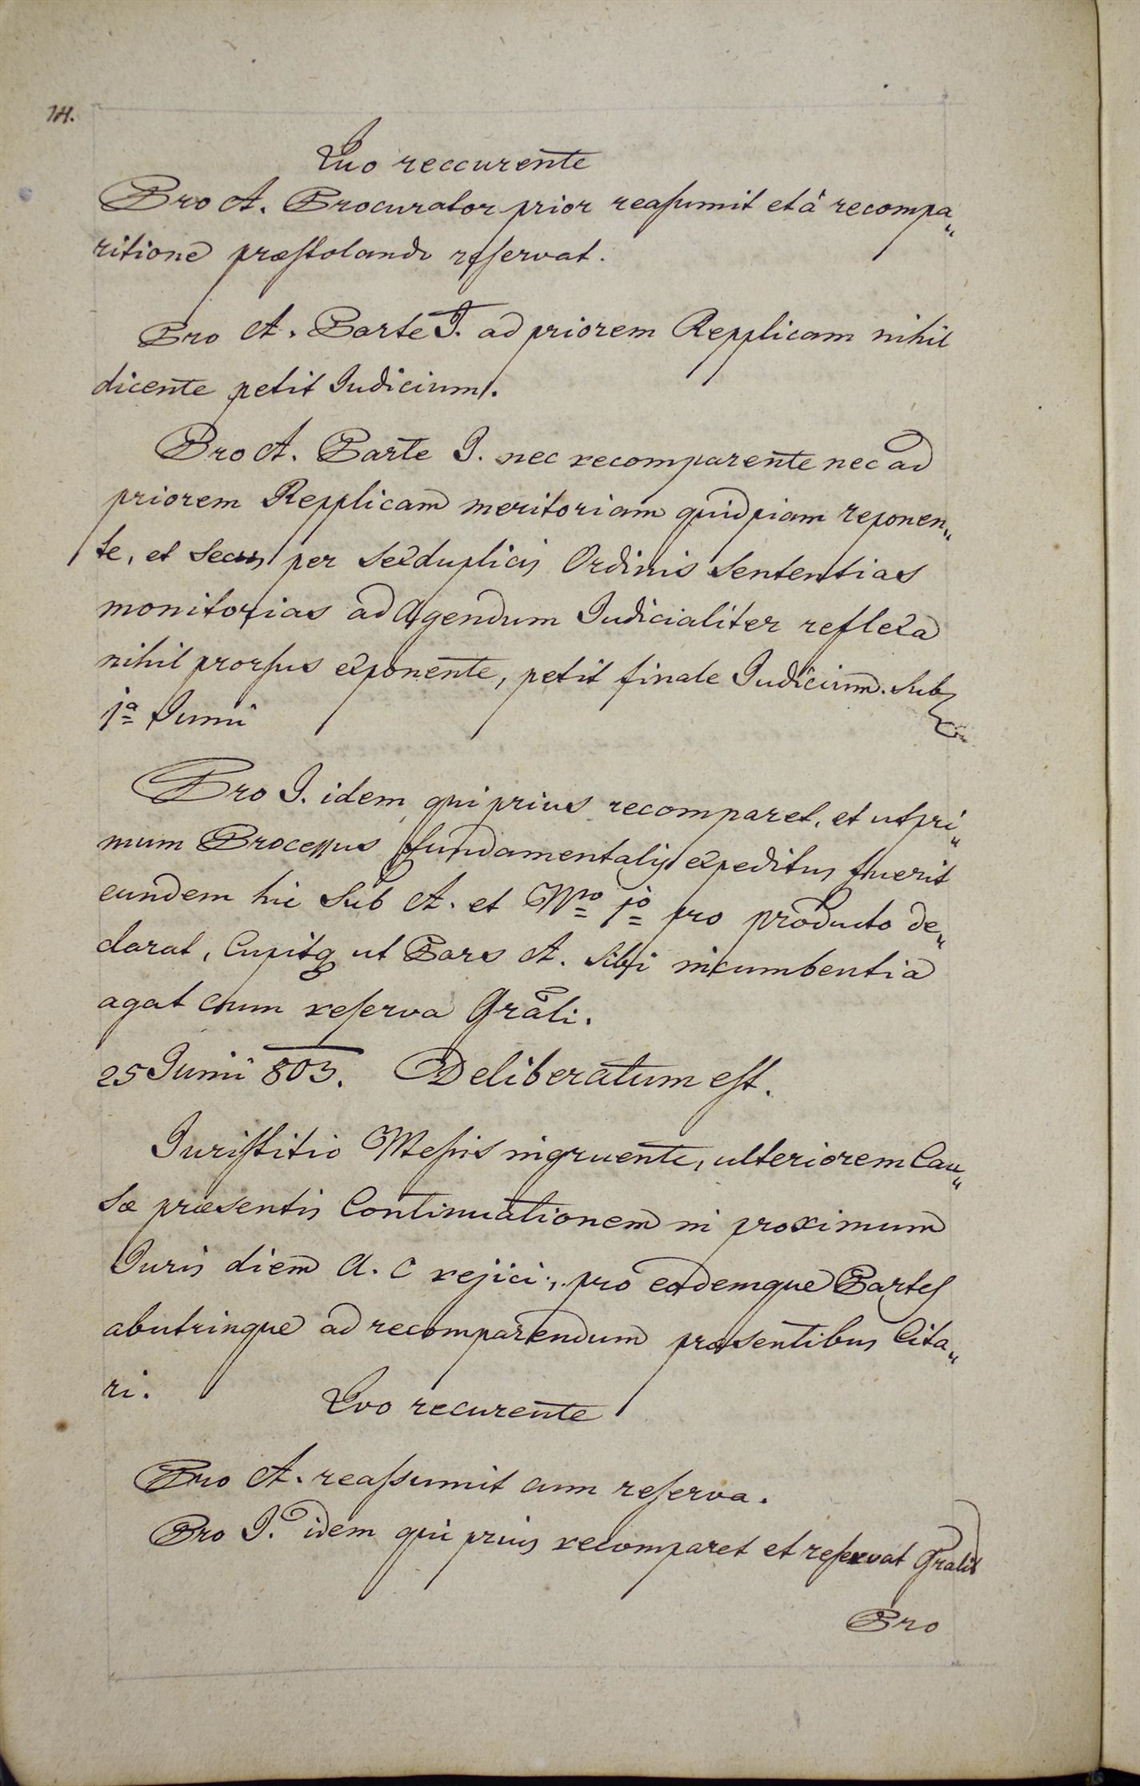 14.
Quo reccurente
Pro A. Procurator prior reaſsumit et à recompa„
ritione præſtolando reſervat.
Pro A. Parte I. ad priorem Repplicam nihil
dicente petit Judicium.
Pro A. Parte I. nec recomparente nec ad
priorem Repplicam meritoriam quidpiam reponen„
te, et secus per sexduplicis Ordinis sententias
monitorias ad Agendum Judicialiter reflexa
nihil prorſus exponente, petit finale Judicium. sub
1ª Junii
Pro I. idem qui prius recomparet, et ut pri„
mum Proceſſus fundamentalis expeditus fuerit
eundem hic sub A. et Nro 1o pro producto de„
clarat, Cupitq ut Pars A. sibi incumbentia
agat cum reſerva Grāli.
25 Junii 803. Deliberatum eſt.
Juriſtitio Meſsis ingruente, ulteriorem Cau„
sæ præsentis Continuationem in proximum
Juris diem A. C rejici, pro eademque Partes
abutrinque ad recomparendum præsentibus Cita„
ri.
Quo recurente
Pro A. reaſsumit cum reſerva.
Pro I. idem qui prius recomparet et reſervat Gralit
Pro